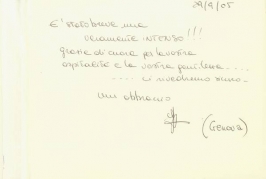 29/9/05
E' stato breve ma
veramente INTENSO!!!
grazie di cuore per la vostra
ospitalità e la vostra gentilezza....
.... ci rivedremo
un abbraccio
(GENOVA)